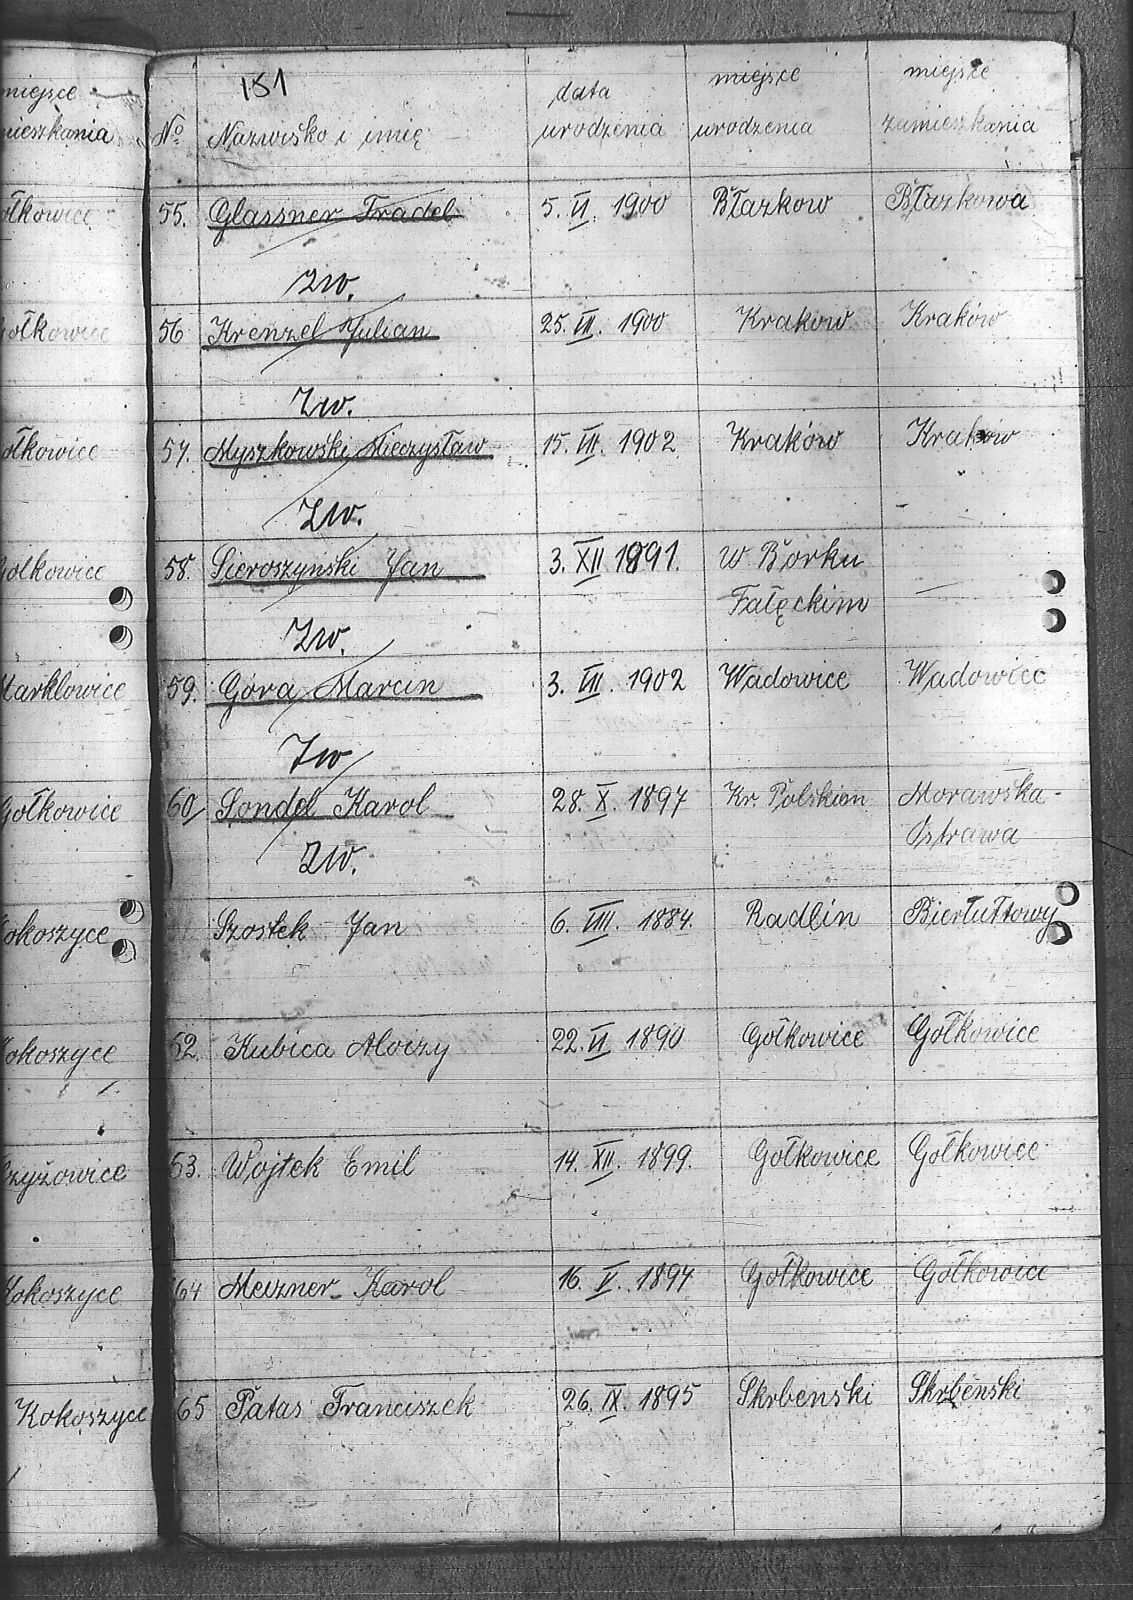 miejsce
mieszkania
ołkowice
Gołkowice
ołkowice
Gołkowice
Marklowice
Gołkowice
Kokoszyce
Kokoszyce
rzyżowice
Kokoszyce
Kokoszyce
151
No Nazwisko i imię data urodzenia miejsce urodzenia miejsce zamieszkania
55. Glassner Fradel 5. VI. 1900 Błazkow Błazkowa
zw.
56 Krenzel Julian 25. VII. 1900 Krakow Kraków
Zw.
57. Myszkowski Mieczysław 15. VII. 1902 Kraków Krakow
Zw.
58. Sieroszyński Jan 3. XII 1891. w Borku —
Fałęckim
Zw.
59. Góra Marcin 3. VII. 1902 Wadowice Wadowice
Zw
60 Sondel Karol 28. X. 1897 Kr. Polskiem Morawska-
Ostrawa
Zw.
Szostek Jan 6. VIII. 1884. Radlin Biertułtowy
62. Kubica Aloczy 22. VI 1890 Gołkowice Gołkowice
63. Wojtek Emil 14. XII. 1899. Gołkowice Gołkowice
64 Meizner Karol 16. V. 1897 Gołkowice Gołkowice
65 Patas Franciszek 26. IX. 1895 Skrbenski Skrbenski